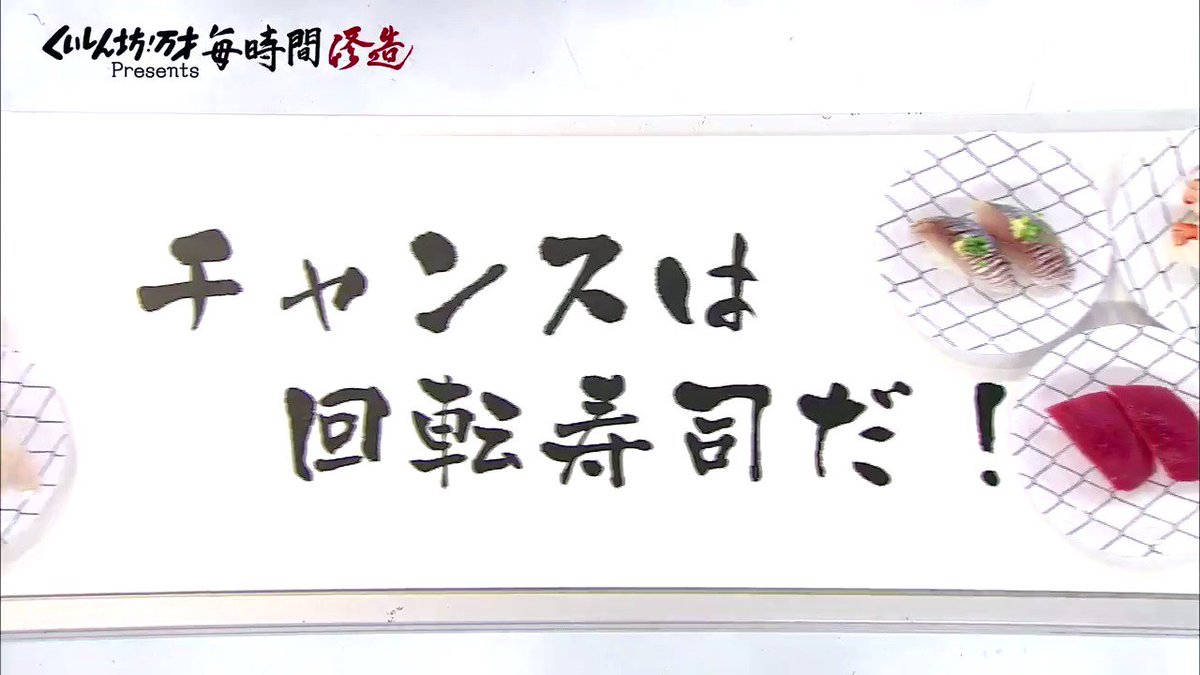 くいしん坊!万才
Presents
毎時間修造
チャンスは
回転寿司だ!